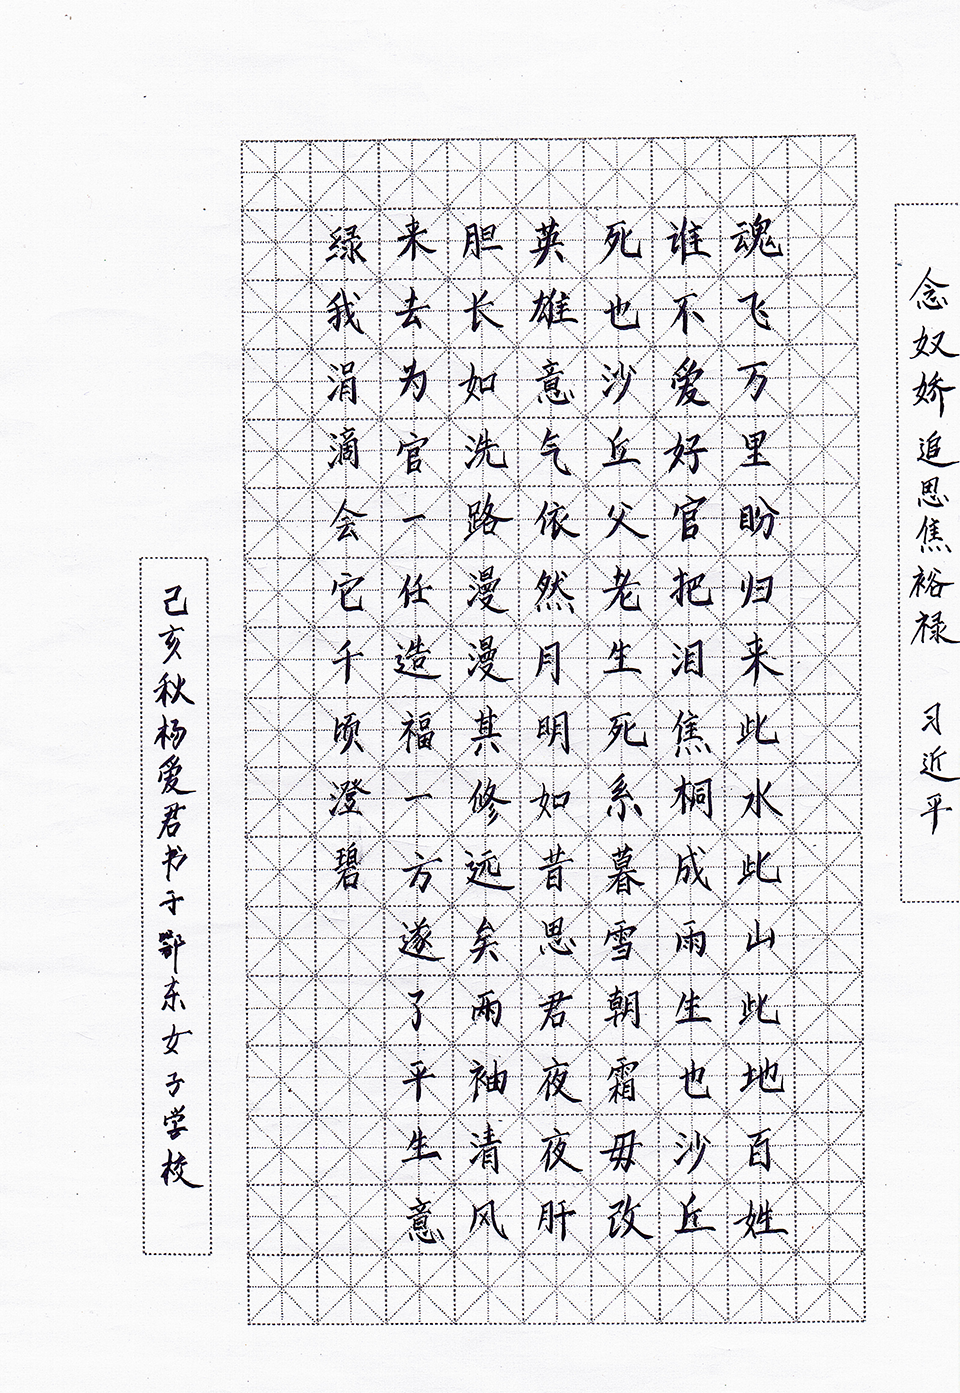 念奴娇 追思焦裕禄 习近平
魂飞万里盼归来此水此山此地百姓
谁不爱好官把泪焦桐成雨生也沙丘
死也沙丘父老生死系暮雪朝霜毋改
英雄意气依然月明如昔思君夜夜肝
胆长如洗路漫漫其修远矣两袖清风
来去为官一任造福一方遂了平生意
绿我涓滴会它千顷澄碧
己亥秋杨爱君书于鄂东女子学校